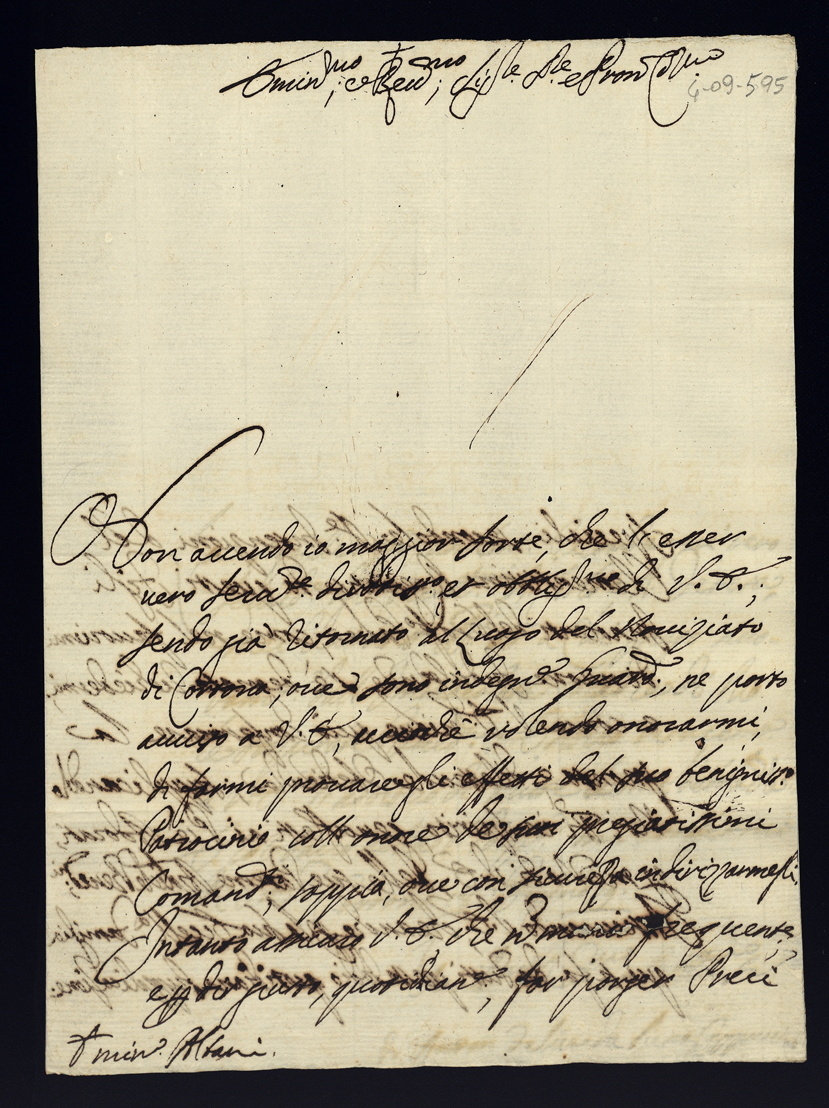 Emin:mo, e Rev:mo Sig:re P.re e Pron Col:mo
4-09-595
Non avendo io maggior sorte, che l'esser
vero serv:re divotis:o et obblig:mo di V. E.;
sendo già ritornato al Luogo del Noviziato
di Cortona, ove sono indegn:e Guard:o, ne porto
avviso a V. E., accioché volendo onorarmi,
di farmi provare gli effetti del suo benigniss:o
Patrocinio coll'onore de suoi pregiatissimi
Comandi, sappia, ove con sicurezza indirizzarmegli.
Intanto assicuro V. E. che frequente,
quotidian:e, far porger Preci
Emin:o Albani.